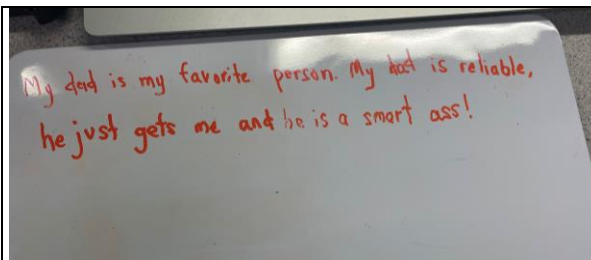 My dad is my favorite person. My dad is reliable,
he just gets me and he is a smart ass!